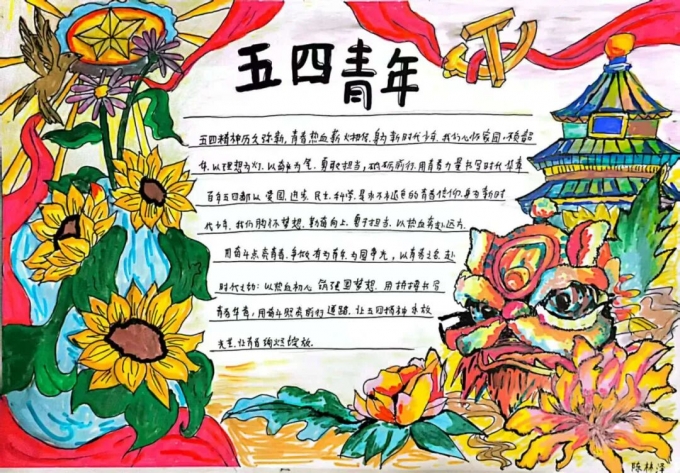 五四青年
五四精神历久弥新，青春热血薪火相传，身为新时代少年，我们心怀家国，不负韶
年，以理想为灯，以奋斗为笔，勇敢担当，砥砺前行，用青春力量书写时代华章
百年五四都以爱国，进步，民主，科学，是永不褪色的青春信仰，身为新时
代少年，我们胸怀梦想，勤奋向上，勇于担当，以热血奔赴远方
用奋斗点亮青春，争做有为青年为国争光，以青春之名，赴
时代之约：以热血初心，筑强国梦想，用拼搏书写
青春华章，用奋斗照亮前行道路，让五四精神永放
光芒，让青春绚烂绽放。
陈林泽